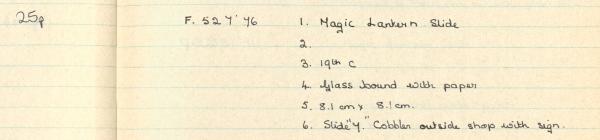 25p F. 52 Y' 76 1. Magic Lantern Slide
2.
3. 19th C
4. Glass bound with paper
5. 8.1 cm x 8.1 cm.
6. Slide "Y." Cobbler outside shop with sign.